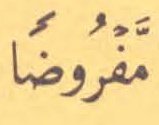 مَّفۡرُوضَٗا